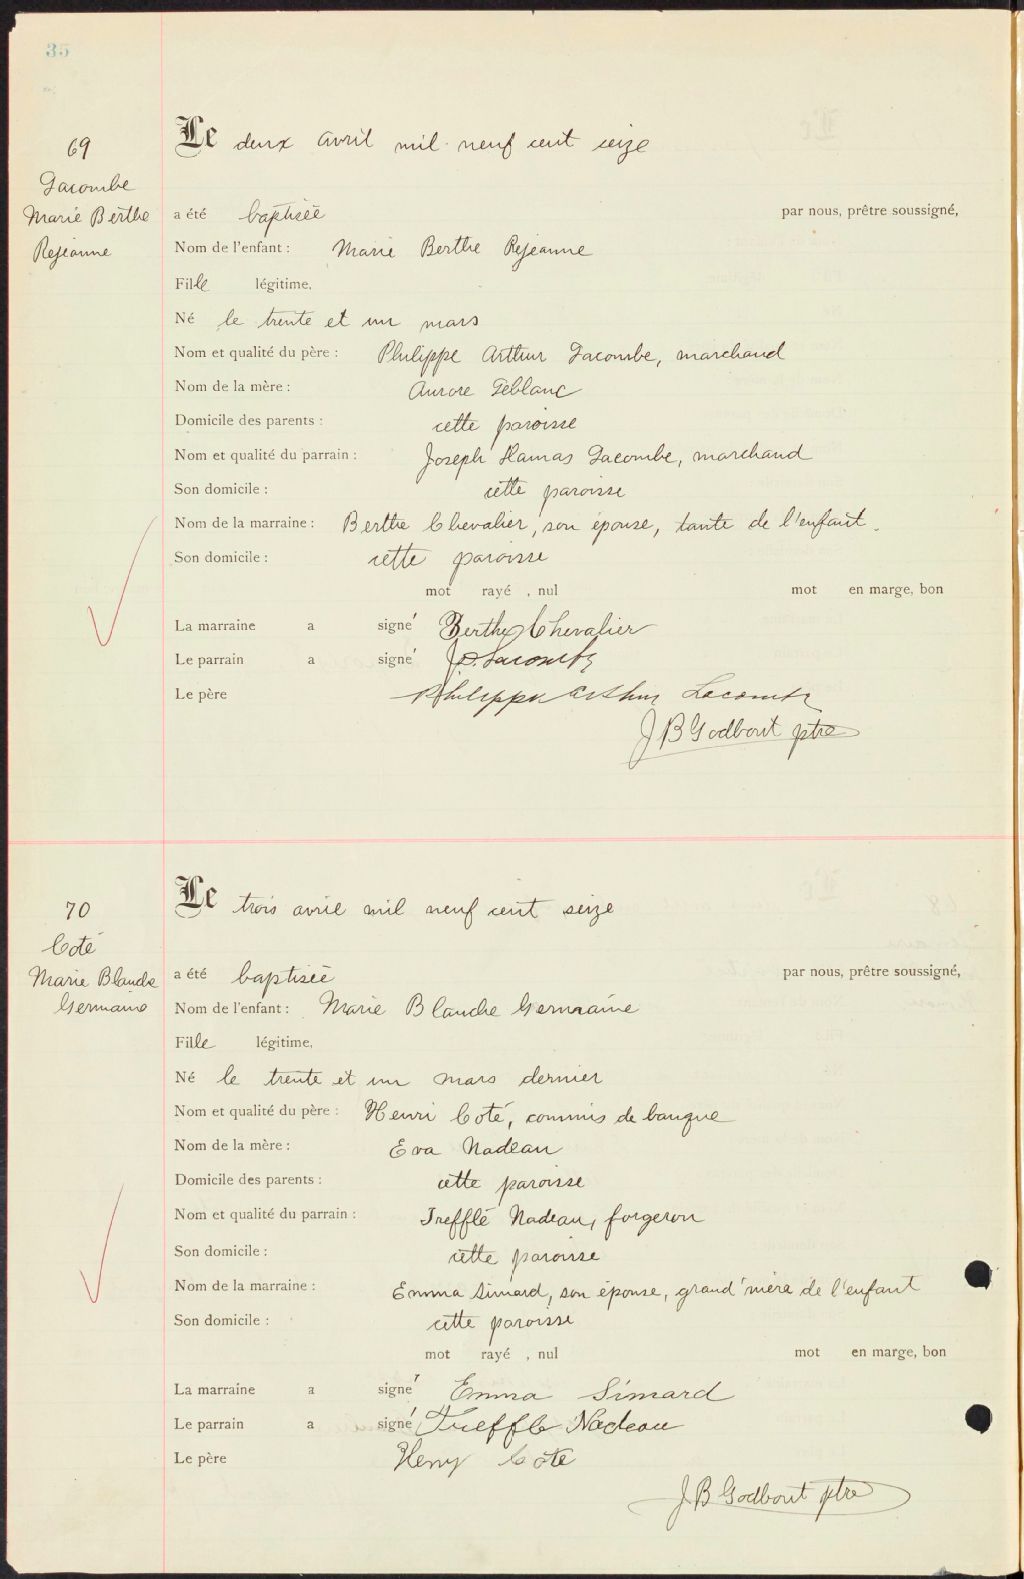 35
69
Lacombe
Marie Berthe
Rejeanne
Le deux avril mil neuf cent seize
a été baptisée par nous, prêtre soussigné,
Nom de l'enfant : Marie Berthe Rejeanne
Fille légitime,
Né le trente et un mars
Nom et qualité du père : Philippe Arthur Lacombe, marchand
Nom de la mère : Aurore Leblanc
Domicile des parents : cette paroisse
Nom et qualité du parrain : Joseph Lacombe, marchand
Son domicile : cette paroisse
Nom de la marraine : Berthe Chevalier, son épouse, tante de l'enfant.
Son domicile : cette paroisse
mot rayé , nul mot en marge, bon
La marraine a signé Berthe Chevalier
Le parrain a signé Lacombe
Le père Philippe Arthur Lacombe
J B Godbout ptre
70
Coté
Marie Blanche
Germaine
Le trois avril mil neuf cent seize
a été baptisée par nous, prêtre soussigné,
Nom de l'enfant : Marie Blanche Germaine
Fille légitime,
Né le trente et un mars dernier
Nom et qualité du père : Henri Coté, commis de banque
Nom de la mère : Eva Nadeau
Domicile des parents : cette paroisse
Nom et qualité du parrain : Trefflé Nadeau, forgeron
Son domicile : cette paroisse
Nom de la marraine : Emma Simard, son épouse, grand'mère de l'enfant
Son domicile : cette paroisse
mot rayé , nul mot en marge, bon
La marraine a signé Emma Simard
Le parrain a signé Treffle Nadeau
Le père Henry Coté
J B Godbout ptre